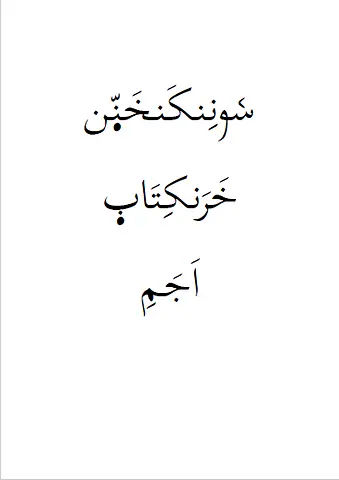 سٗونِنكَنخَنّٜن
خَرَنكِتَابٜ
اَجَمِ